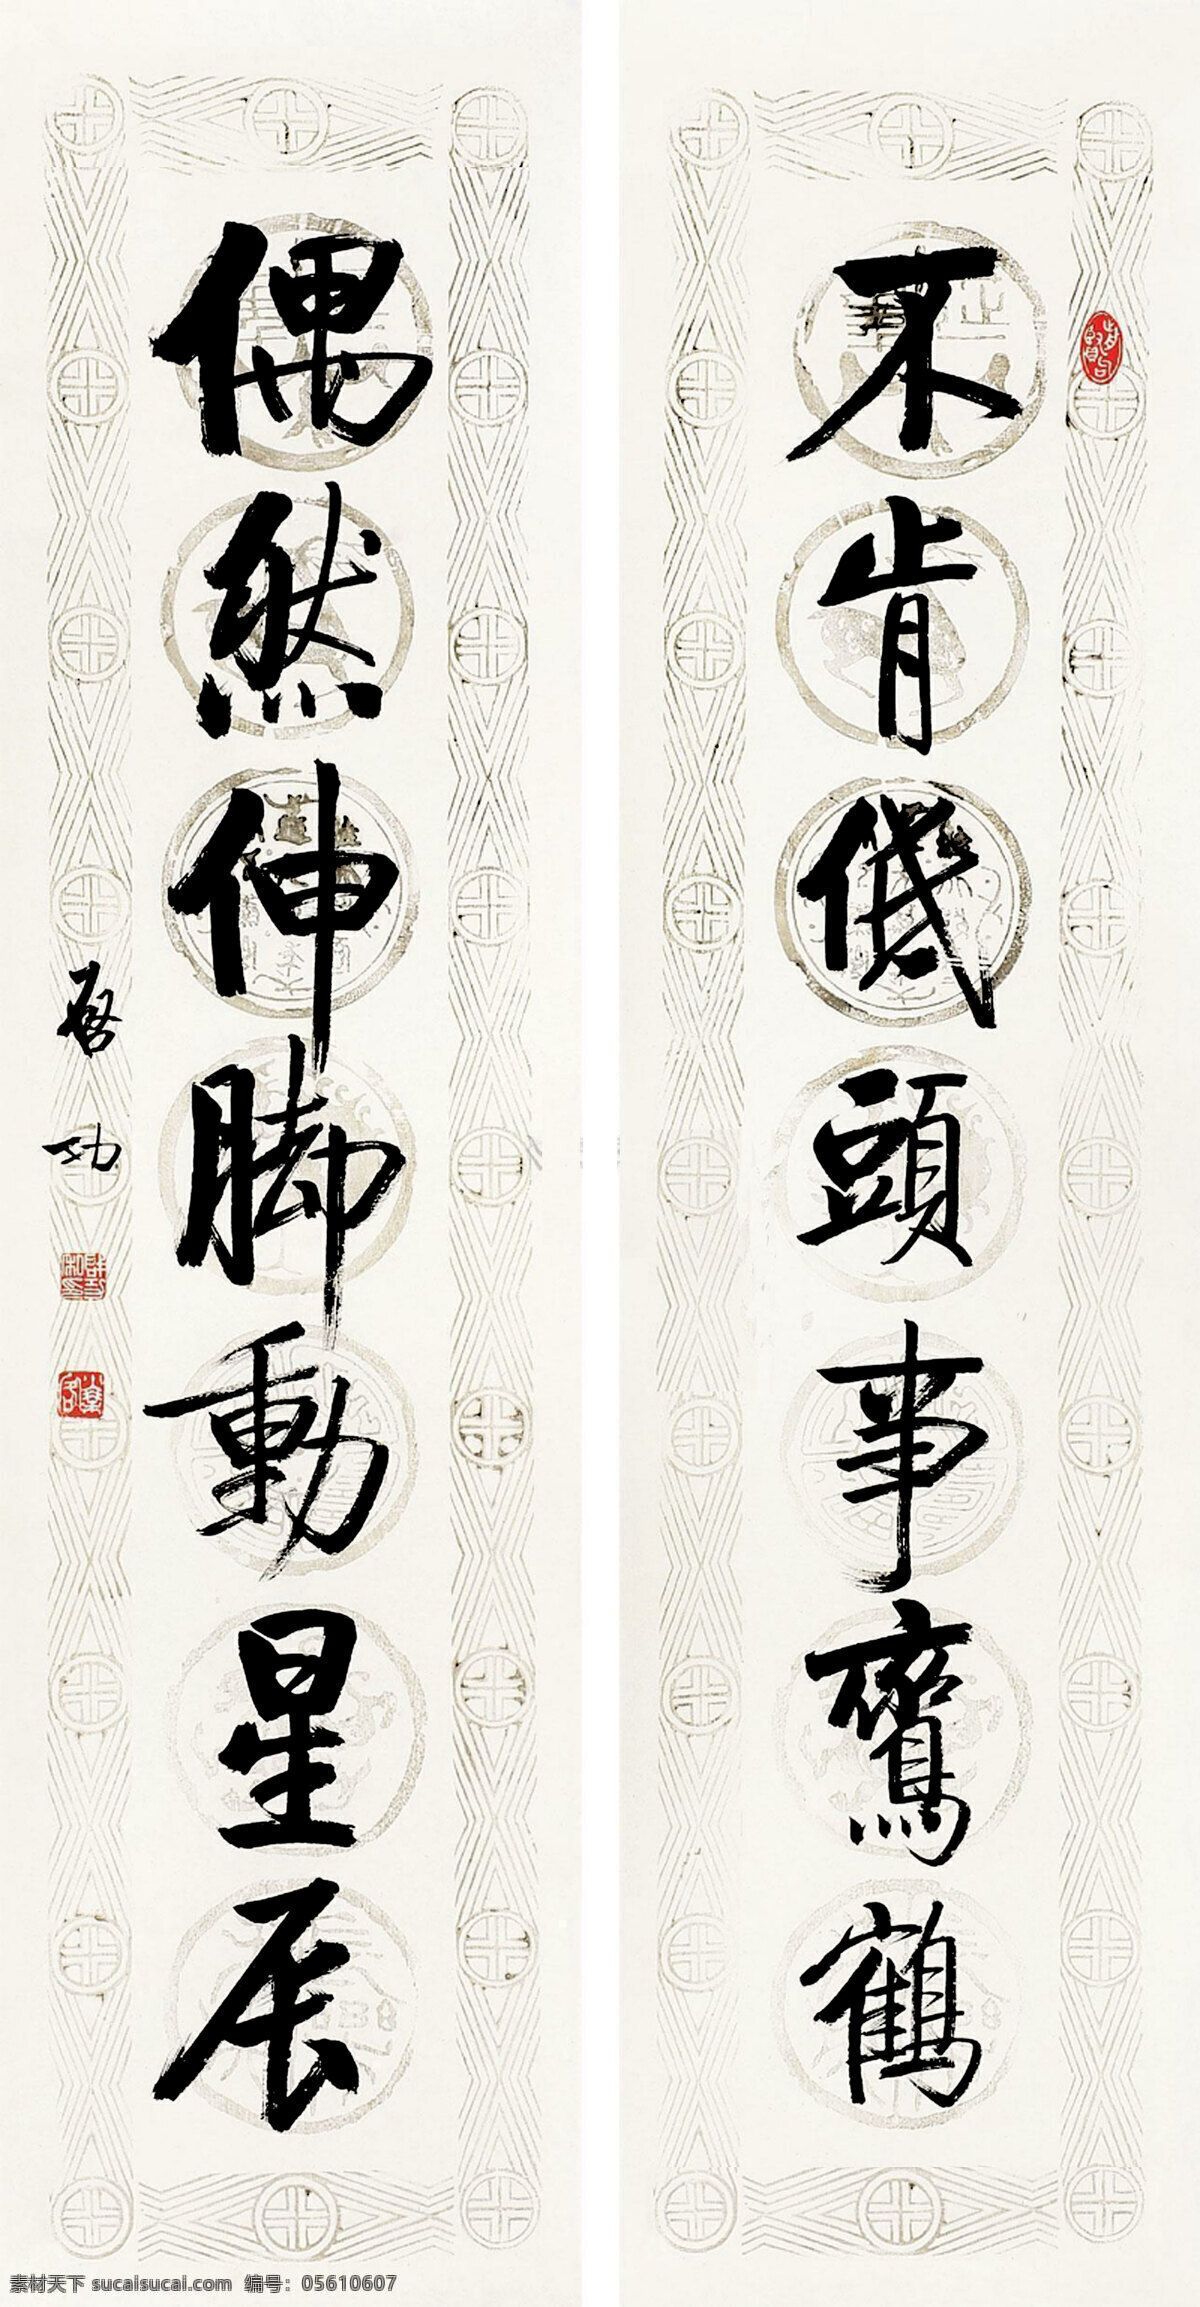 不肯低頭事鸞鶴
偶然伸脚動星辰
啓功
素材天下 sucaisucai.com 编号：05610607